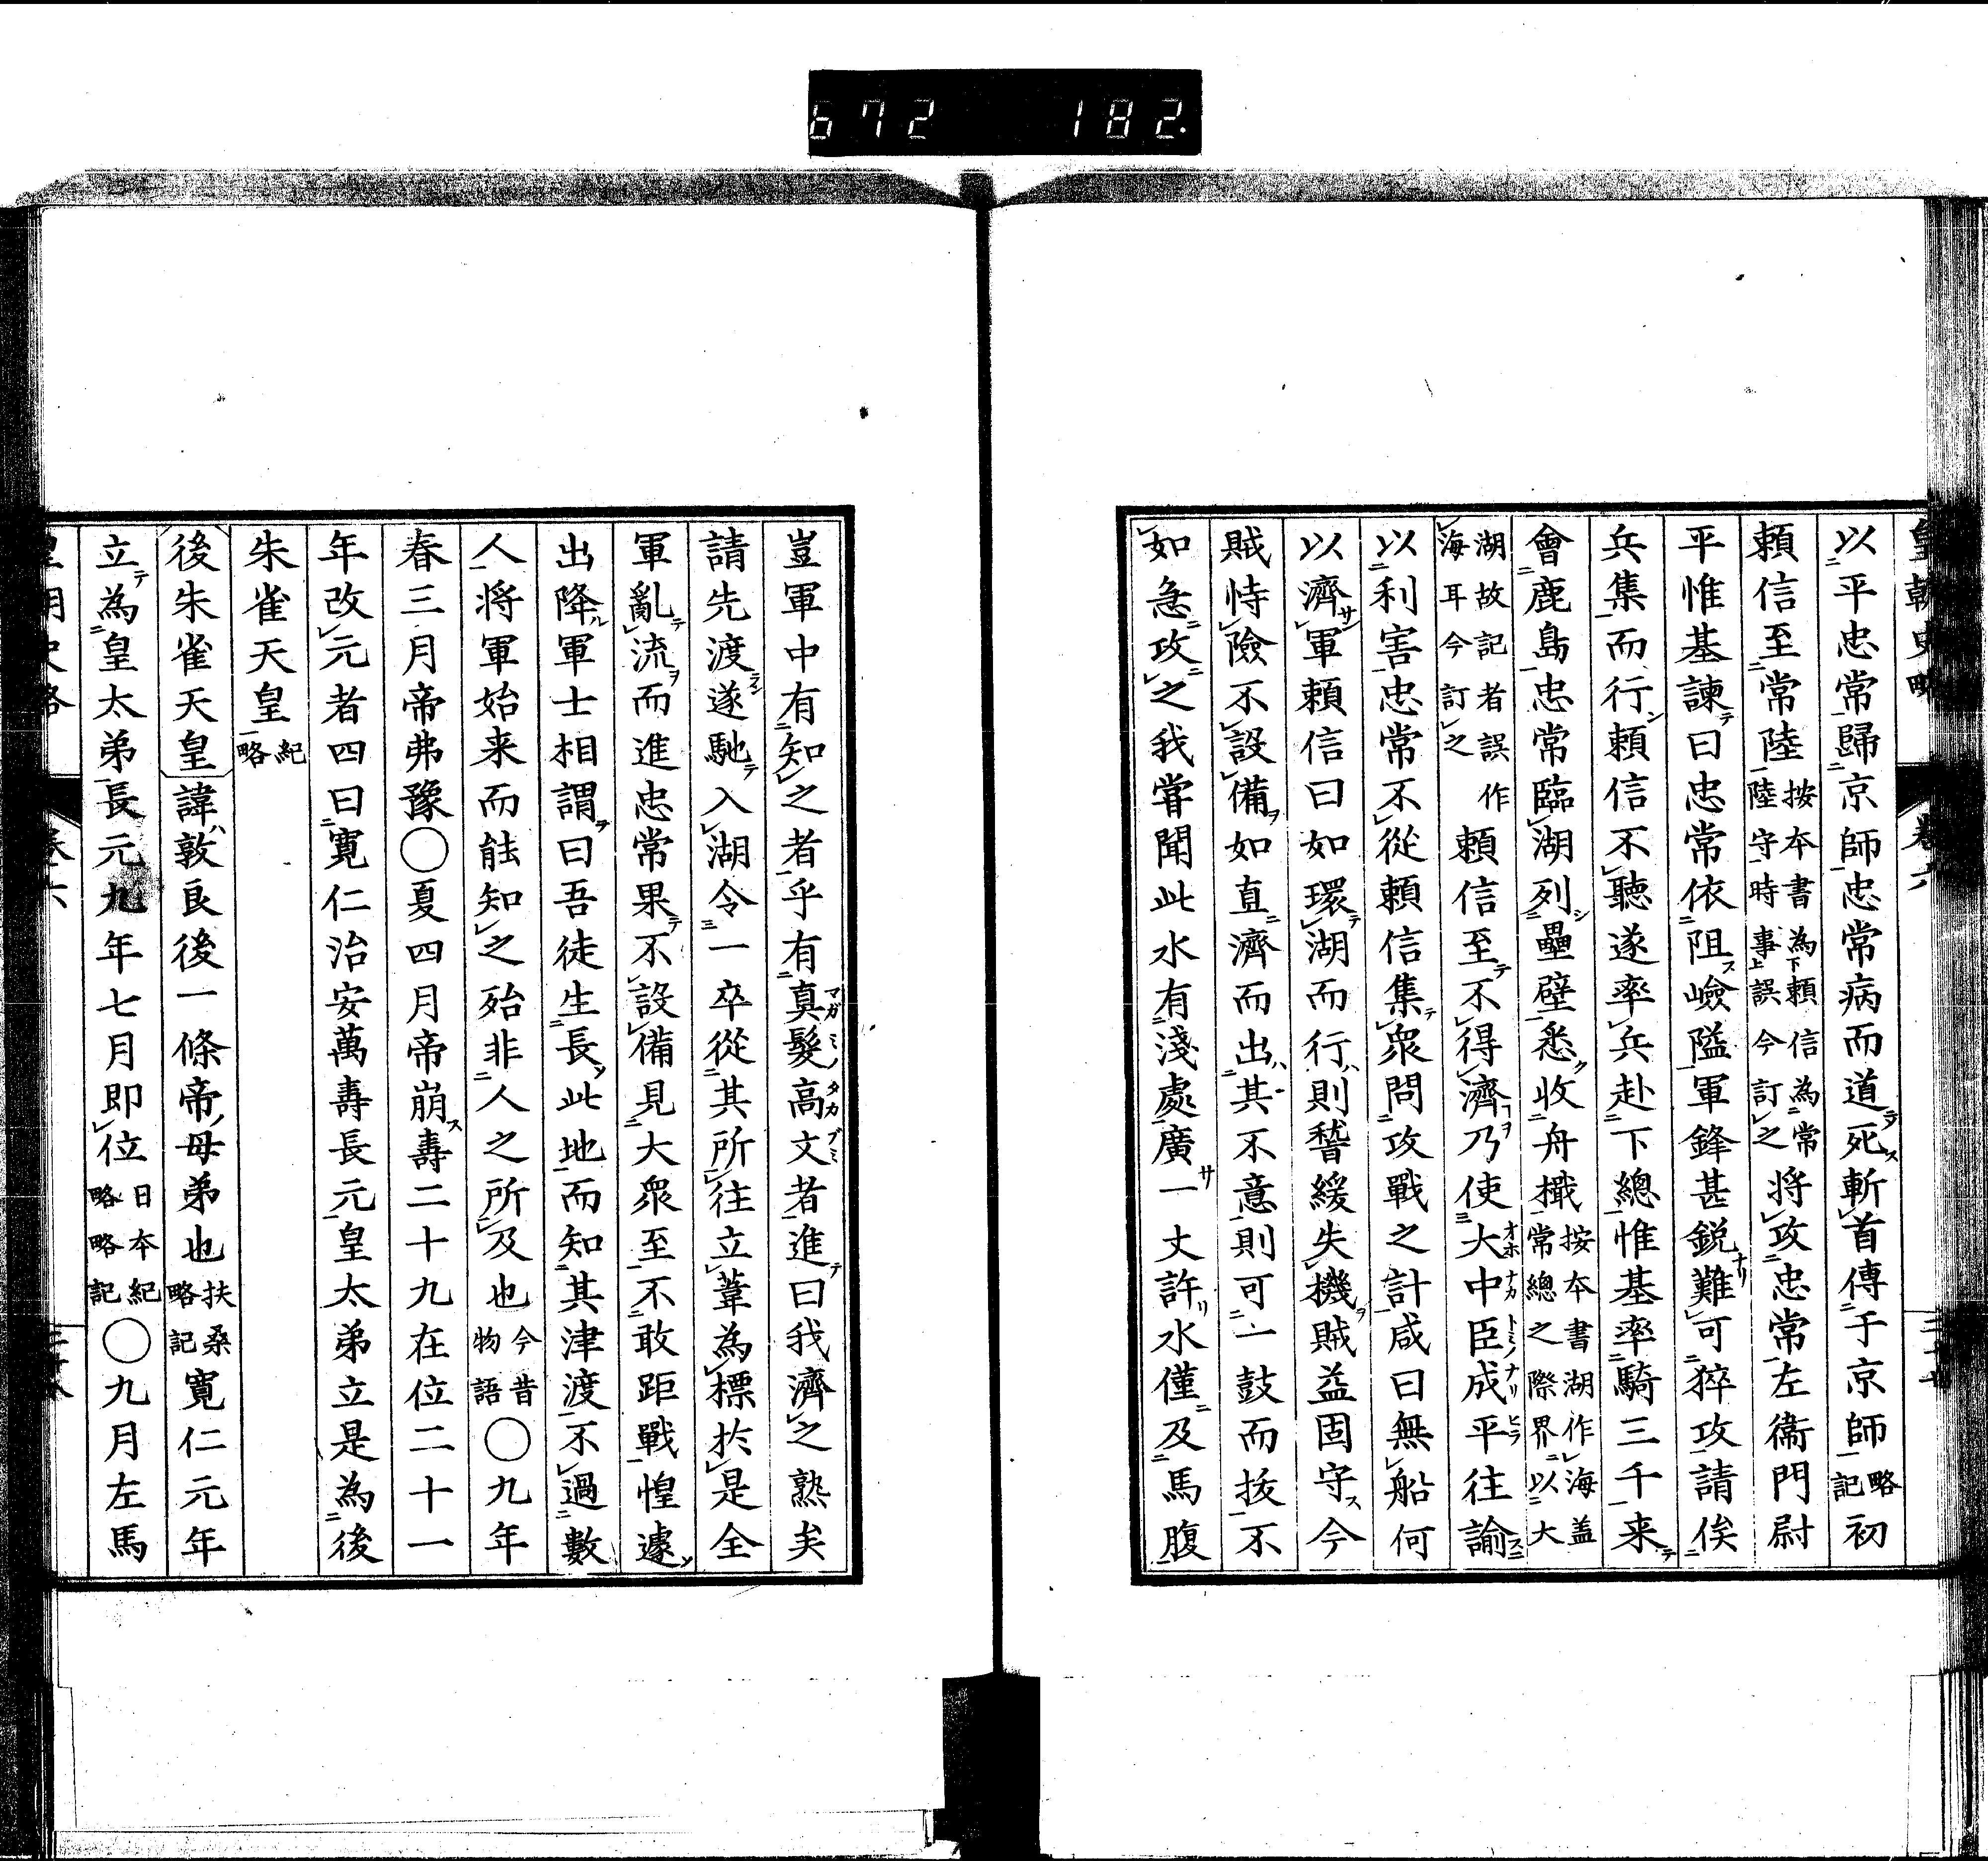 672 182.
皇朝史略 卷六
以平忠常歸京師忠常病而道死斬首傳于京師略記初
頼信至常陸按本書為頼信為常陸守時事誤今訂之將攻忠常左衞門尉
平惟基諫曰忠常依阻嶮隘軍鋒甚鋭難可猝攻請俟
兵集而行頼信不聽遂率兵赴下總惟基率騎三千來
會鹿島忠常臨湖列壘壁悉收舟檝按本書湖作海盖常總之際界以大
湖故記者誤作海耳今訂之頼信至不得濟乃使大中臣成平往諭
以利害忠常不從頼信集衆問攻戰之計咸曰無船何
以濟軍頼信曰如環湖而行則稽緩失機賊益固守今
賊恃險不設備如直濟而出其不意則可一鼓而拔不
如急攻之我甞聞此水有淺處廣一丈許水僅及馬腹
豈軍中有知之者乎有真髮高文者進曰我濟之熟矣
請先渡遂馳入湖令一卒從其所往立葦為標於是全
軍亂流而進忠常果不設備見大衆至不敢距戰惶遽
出降軍士相謂曰吾徒生長此地而知其津渡不過數
人將軍始来而能知之殆非人之所及也今昔物語〇九年
春三月帝弗豫〇夏四月帝崩壽二十九在位二十一
年改元者四曰寬仁治安萬壽長元皇太弟立是為後
朱雀天皇紀略
後朱雀天皇諱敦良後一條帝母弟也扶桑略記寬仁元年
立為皇太弟長元九年七月即位日本紀略略記〇九月左馬